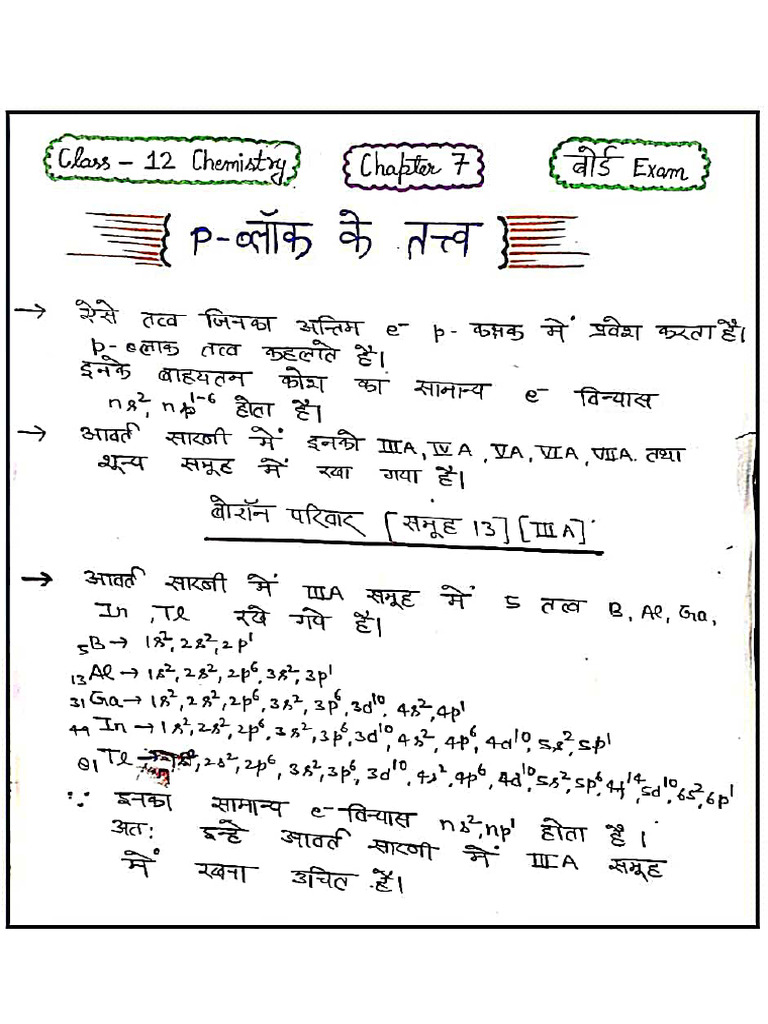 Class - 12 Chemistry
Chapter 7
बोर्ड Exam
p-ब्लॉक के तत्त्व
→ ऐसे तत्व जिनका अन्तिम e⁻ p- कक्षक में प्रवेश करता है।
p-ब्लाक तत्व कहलाते है।
इनके बाहयतम कोश का सामान्य e⁻ विन्यास
ns², np¹⁻⁶ होता है।
→ आवर्त सारणी में इनको IIIA, IVA, VA, VIA, VIIA. तथा
शून्य समूह में रखा गया है।
बोरॉन परिवार [समूह 13] [IIIA]
→ आवर्त सारणी में IIIA समूह में 5 तत्व B, Al, Ga,
In, Tl रखे गये है।
₅B → 1s², 2s², 2p¹
₁₃Al → 1s², 2s², 2p⁶, 3s², 3p¹
₃₁Ga → 1s², 2s², 2p⁶, 3s², 3p⁶, 3d¹⁰, 4s², 4p¹
₄₉In → 1s², 2s², 2p⁶, 3s², 3p⁶, 3d¹⁰, 4s², 4p⁶, 4d¹⁰, 5s², 5p¹
₈₁Tl → 2s², 2p⁶, 3s², 3p⁶, 3d¹⁰, 4s², 4p⁶, 4d¹⁰, 5s², 5p⁶, 4f¹⁴, 5d¹⁰, 6s², 6p¹
∵ इनका सामान्य e⁻-विन्यास ns², np¹ होता है।
अत: इन्हे आवर्त सारणी में IIIA समूह
में रखना उचित है।